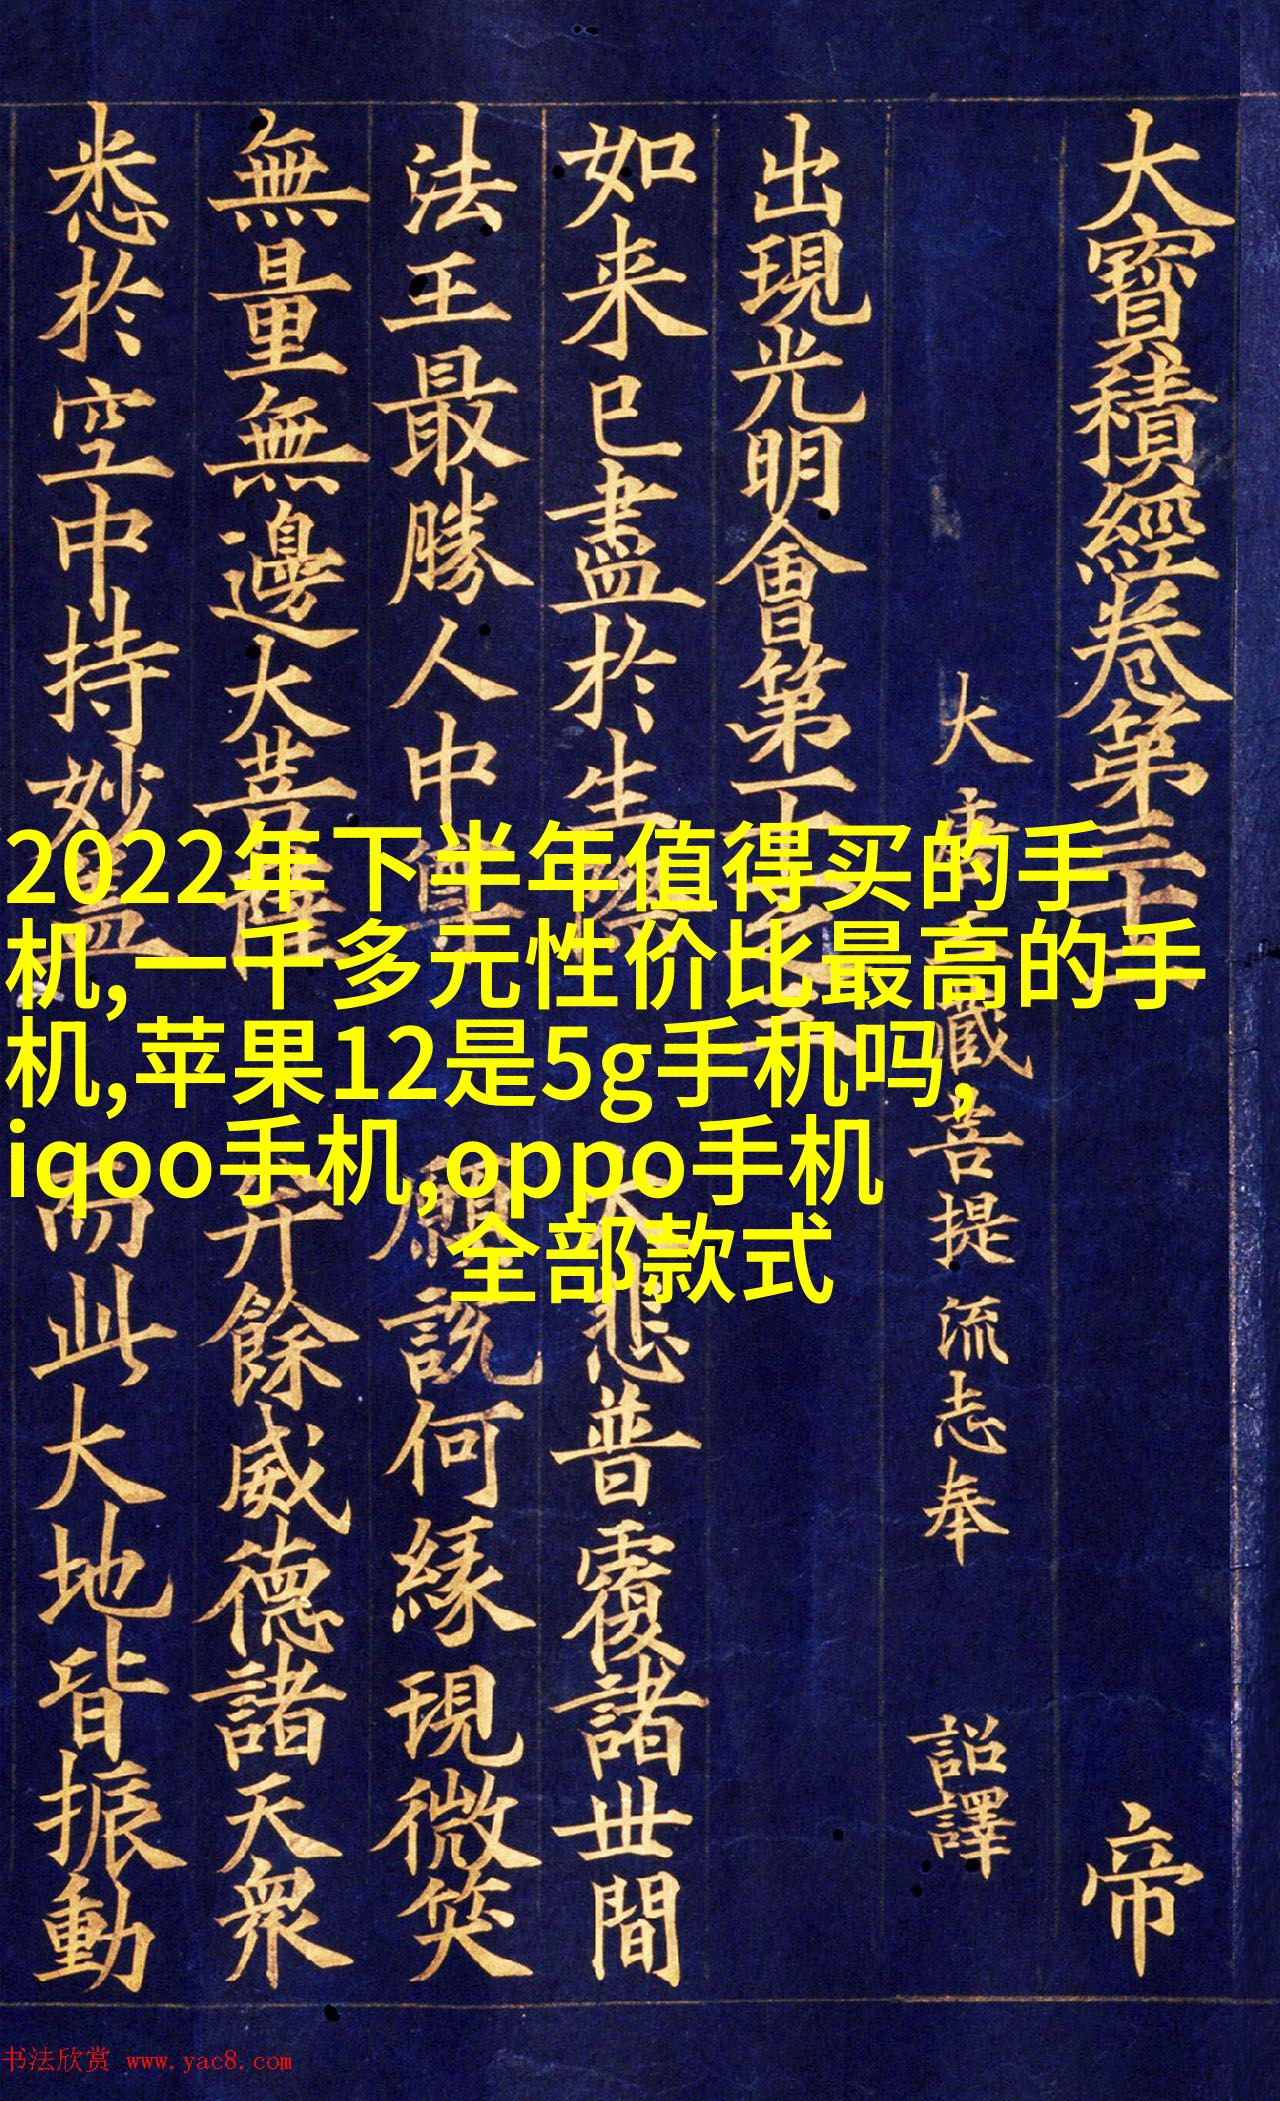 大寶積經卷第三十二 帝
大唐三藏菩提流志奉 詔譯
出現光明會第十一之三
如来已盡於生 大悲普覆諸世間
法王最勝人中尊 願説何縁現微笑
無量無邊大菩薩 并餘威德諸天衆
悉於空中持妙蓋 而此大地皆振動
2022年下半年值得买的手
机,一千多元性价比最高的手
机,苹果12是5g手机吗,
iqoo手机,oppo手机
全部款式
书法欣赏 www.yac8.com